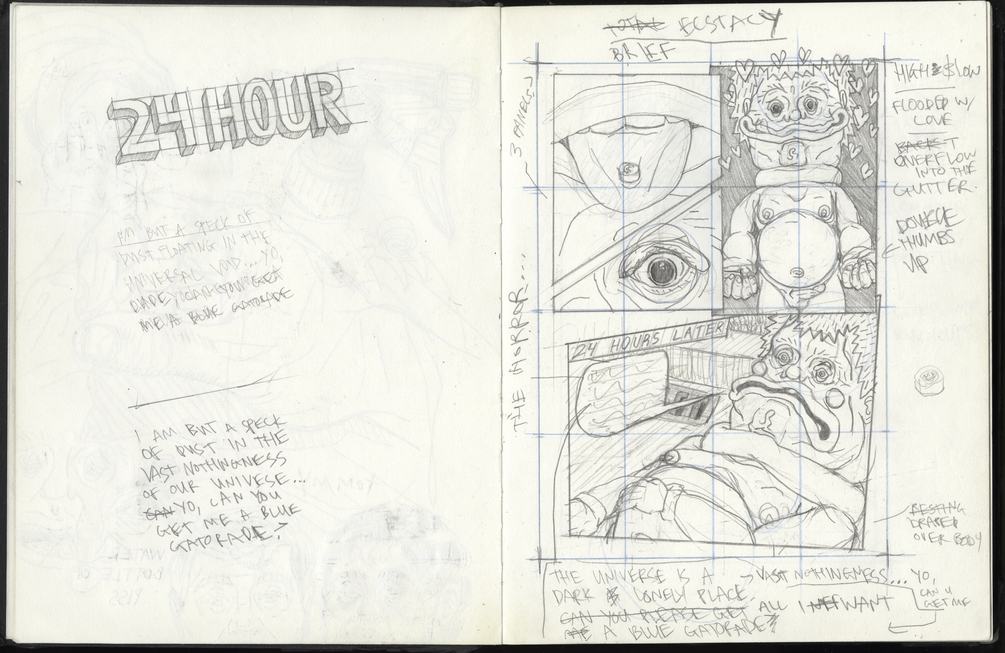 24 HOUR
I'M BUT A SPECK OF
DUST FLOATING IN THE
UNIVERSAL VOID... YO,
DUDE, CAN YOU GET
ME A BLUE GATORADE
I AM BUT A SPECK
OF DUST IN THE
VAST NOTHINGNESS
OF OUR UNIVESE...
CAN YO, CAN YOU
GET ME A BLUE
GATORADE?
TOTAL ECSTACY
BRIEF
3 PANELS
THE HORROR...
HIGH & $LOW
FLOODED W/
LOVE
OVERFLOW
INTO THE
GUTTER.
DOUBLE
THUMBS
UP
24 HOURS LATER
RESTING
DRAPED
OVER BODY
THE UNIVERSE IS A
DARK & LONELY PLACE.
CAN YOU PLEASE GET
ME A BLUE GATORADE?
VAST NOTHINGNESS... YO,
ALL I WANT
CAN U
GET ME
YOMM
WATER
BOTTLE OF
PISS